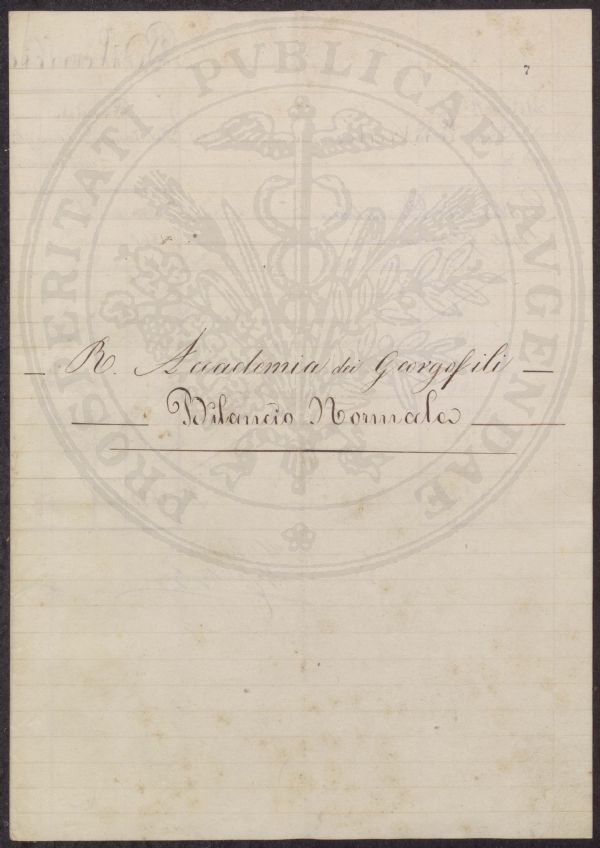 7
PROSPERITATI PVBLICAE AVGENDAE
R. Accademia dei Georgofili
Bilancio Normale